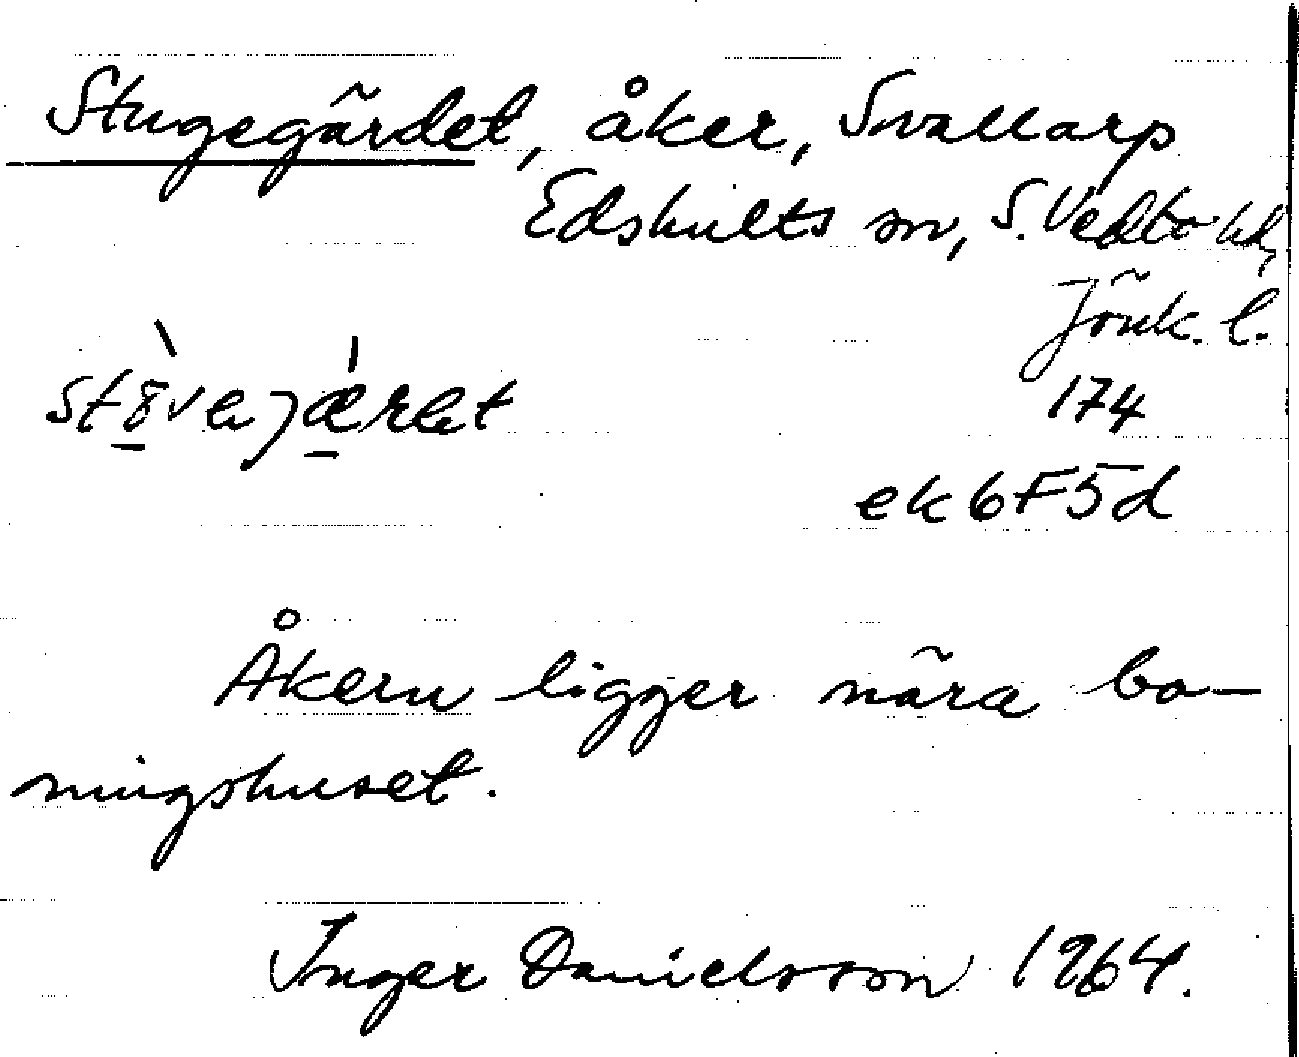 Stugegärdet, åker, Svallarp
Edshults sn, S. Vedbo hd,
Jönk. l.
174
ek 6F5d
Åkern ligger nära bo-
ningshuset.
Inger Danielsson 1964.